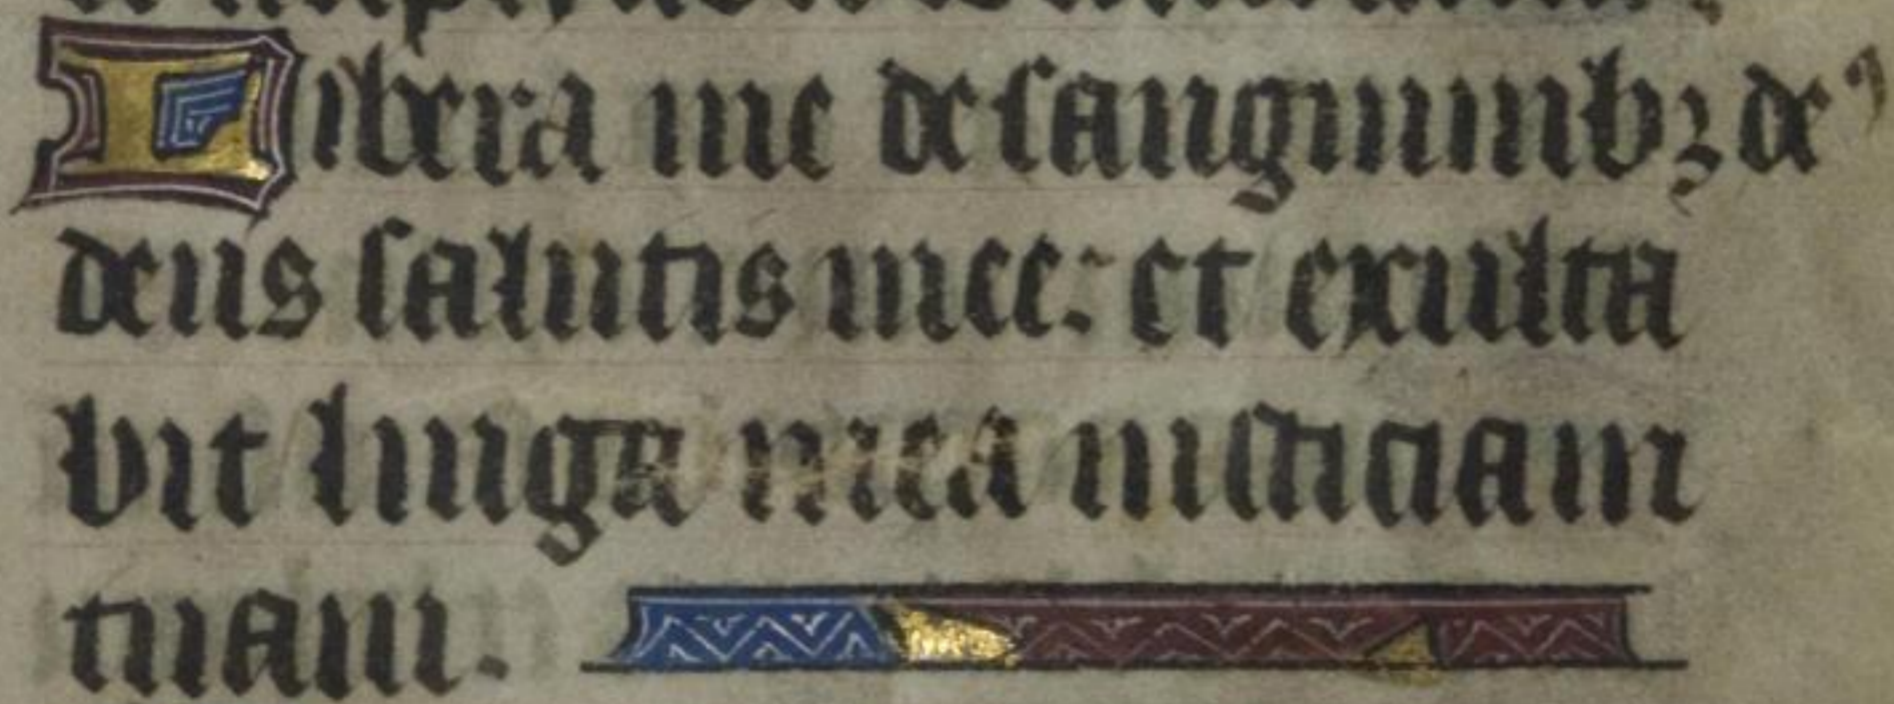 Libera me de sanguinibꝫ de
deus salutis mee: et exulta
bit linga mea iusticiam
tuam.